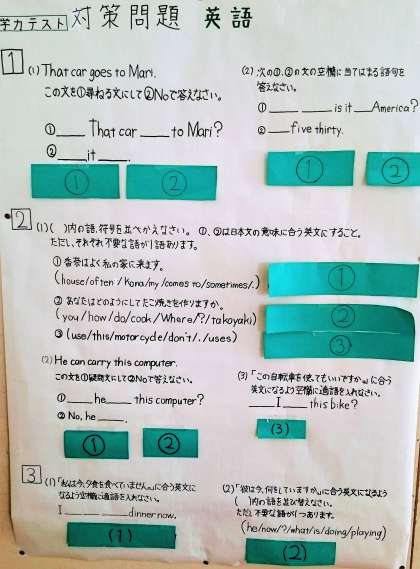 学力テスト 対策問題 英語
1
(1) That car goes to Mari.
この文を①尋ねる文にして②Noで答えなさい。
① ____ That car ____ to Mari?
② ____ it ____.
① ②
(2) 次の①、②の文の空欄に当てはまる語句を
答えなさい。
① ____ ____ is it ____ America?
② ____ five thirty.
① ②
2
(1) ( )内の語、符号を並べかえなさい。 ①、②は日本文の意味に合う英文にすること。
ただし、それぞれ不要な語が1語あります。
① 香奈はよく私の家に来ます。
(house/often/Kana/my/comes to/sometimes/.)
①
② あなたはどのようにしてたこ焼きを作りますか。
(you/how/do/cook/Where/?/takoyaki)
②
③ (use/this/motorcycle/don't/./uses)
③
(2) He can carry this computer.
この文を①疑問文にして②Noで答えなさい。
① ____ he ____ this computer?
② No, he ____.
① ②
(3) 「この自転車を使ってもいいですか。」に合う
英文になるよう空欄に適語を入れなさい。
____ I ____ this bike?
(3)
3
(1) 「私は今、夕食を食べていません。」に合う英文に
なるよう空欄に適語を入れなさい。
I ____ ____ dinner now.
(1)
(2) 「彼は今、何をしていますか。」に合う英文になるよう
( )内の語を並び替えなさい。
ただし不要な語が1つあります。
(he/now/?/what/is/doing/playing)
(2)